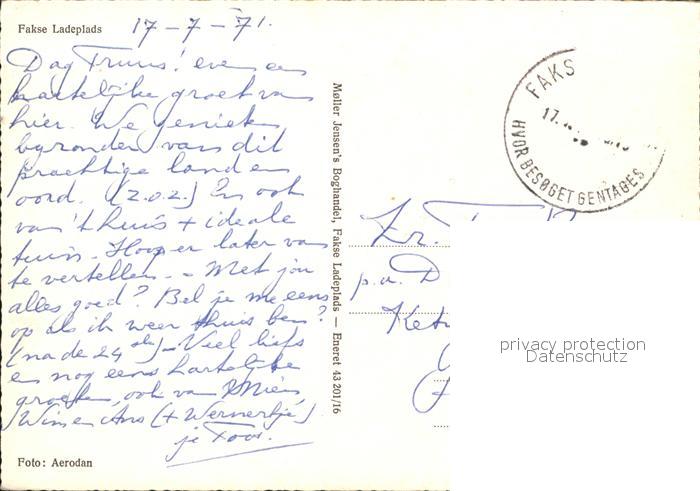 Fakse Ladeplads 17-7-71.
Dag Truus! even een
hartelijke groet van
hier. We genieten
bijzonder van dit
prachtige land en
oord. (z.o.z.) En ook
van 't huis + ideale
tuin. Hoop er later van
te vertellen. - Met jou
alles goed? Bel je me eens
op als ik weer thuis ben?
(na de 24 ste) - Veel liefs
en nog eens hartelijke
groeten, ook van Miens,
Wim en Ans (+ Wernertje)
je Toos.
Foto: Aerodan
Møller Jensen's Boghandel, Fakse Ladeplads — Eneret 43.201/16
FAKS
17.
HVOR BESØGET GENTAGES
Zr. T
p.a. D
Ket
privacy protection
Datenschutz